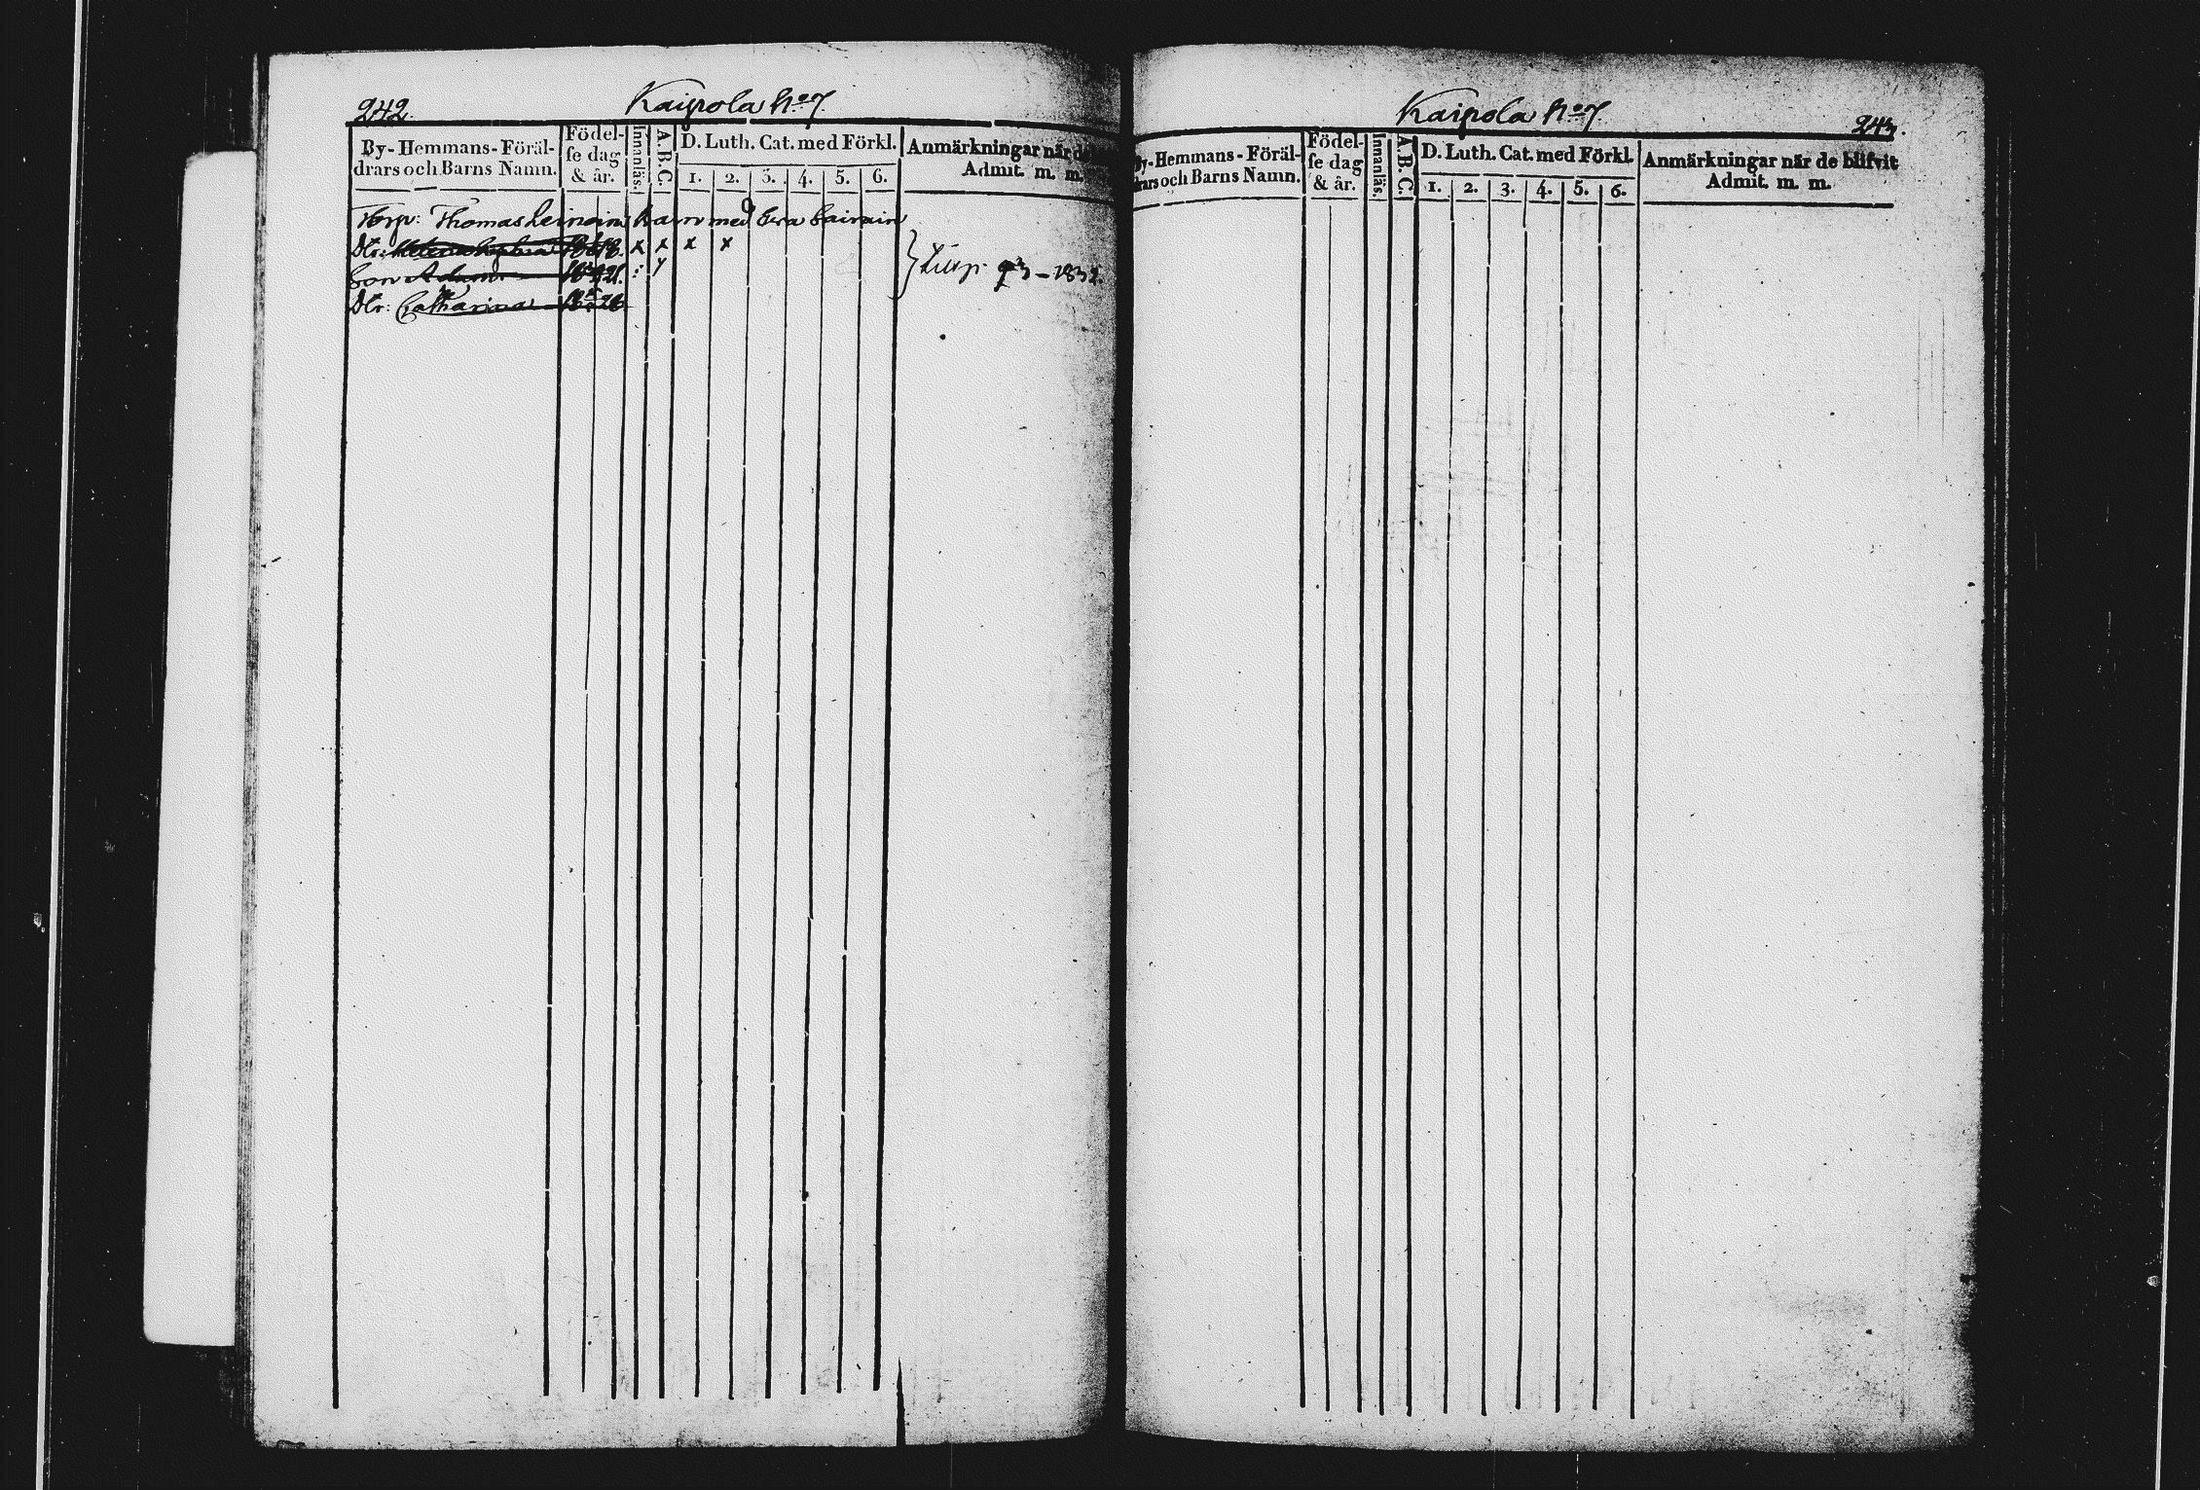 242.
Kaipola No 7.
By- Hemmans- Föräl-
drars och Barns Namn.
Födel-
se dag
& år.
Innanläs.
A.B.C.
D. Luth. Cat. med Förkl.
1. 2. 3. 4. 5. 6.
Anmärkningar när de
Admit. m. m.
Torp: Thomas barn med Eva
Dtr: Helena Sophia 1818. x x x x
Son Adam 1821.
Dtr: Catharina
1832.
Kaipola No 7.
243.
By- Hemmans- Föräl-
drars och Barns Namn.
Födel-
se dag
& år.
Innanläs.
A.B.C.
D. Luth. Cat. med Förkl.
1. 2. 3. 4. 5. 6.
Anmärkningar när de blifvit
Admit. m. m.